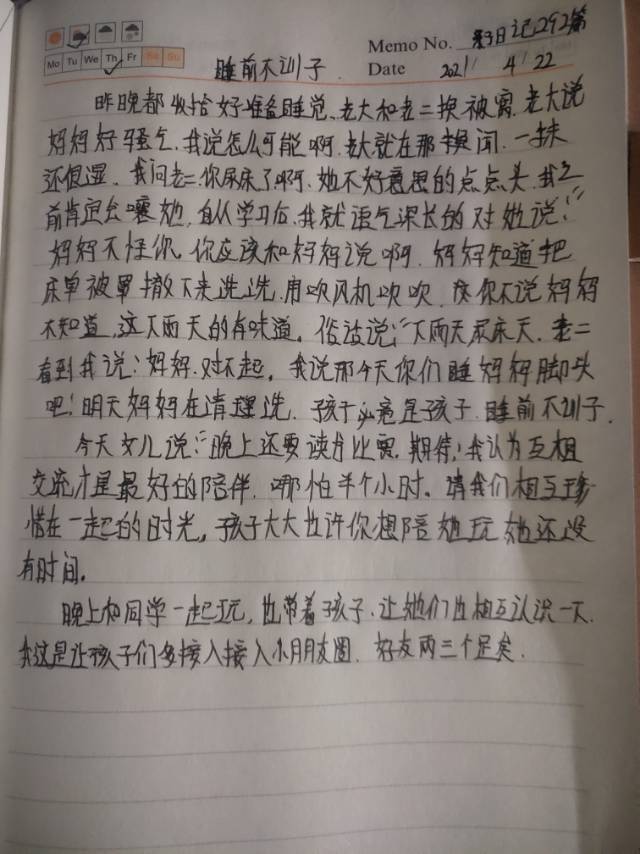 Memo No. 亲子日记292篇
Mo Tu We Th Fr Sa Su
睡前不训子.
Date 2021 / 4 / 22
昨晚都收拾好准备睡觉、老大和老二换被窝.老大说
妈妈好骚气.我说怎么可能啊.老大就在那块闻.一抹
还很湿.我问老二你尿床了啊.她不好意思的点点头.我之
前肯定会嚷她,自从学习后.我就语气深长的对她说:"
妈妈不怪你.你应该和妈妈说啊.妈妈知道把
床单被罩撤下来洗洗.用吹风机吹吹.你不说妈妈
不知道.这下雨天的有味道。俗话说:"下雨天尿床天.老二
看到我说:妈妈.对不起。我说那今天你们睡妈妈脚头
吧!明天妈妈在清理洗.孩子必竟是孩子.睡前不训子.
今天女儿说:"晚上还要读方比需.期待,!我认为互相
交流才是最好的陪伴.哪怕半个小时。请我们相互珍
惜在一起的时光。孩子大大也许你想陪她玩她还没
有时间。
晚上和同学一起玩,也带着孩子.让她们也相互认识一下.
这是让孩子们多接入接入小朋友圈.好友两三个足矣.